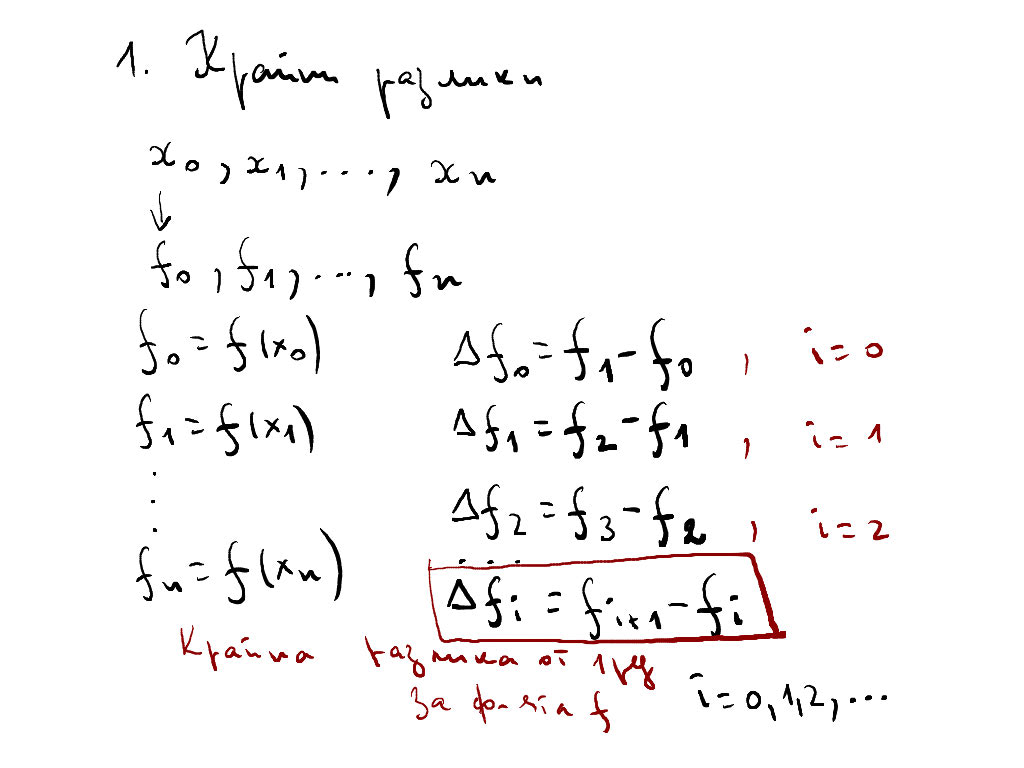 1. Крайни разлики
x₀, x₁, ..., xₙ
↓
f₀, f₁, ..., fₙ
f₀ = f(x₀) Δf₀ = f₁ - f₀, i = 0
f₁ = f(x₁) Δf₁ = f₂ - f₁, i = 1
⋮ Δf₂ = f₃ - f₂, i = 2
...
fₙ = f(xₙ) Δfᵢ = fᵢ₊₁ - fᵢ
Крайна разлика от 1 ред
за ф-ята f i = 0, 1, 2, ...